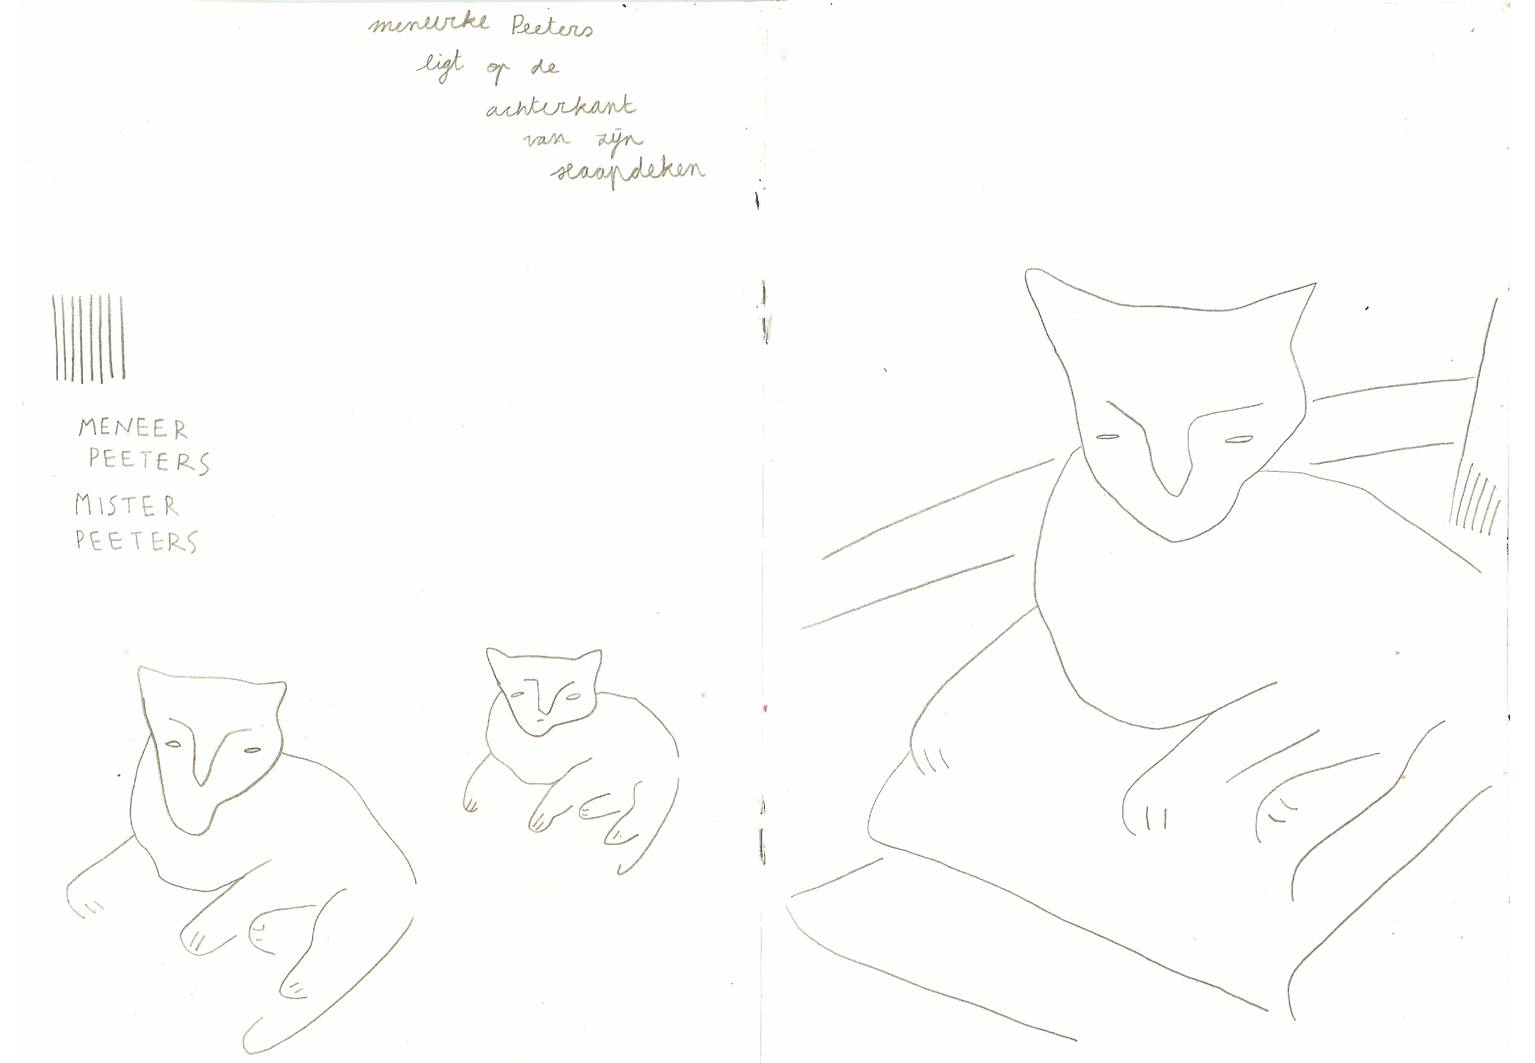 meneerke Peeters
ligt op de
achterkant
van zijn
slaapdeken
MENEER
PEETERS
MISTER
PEETERS